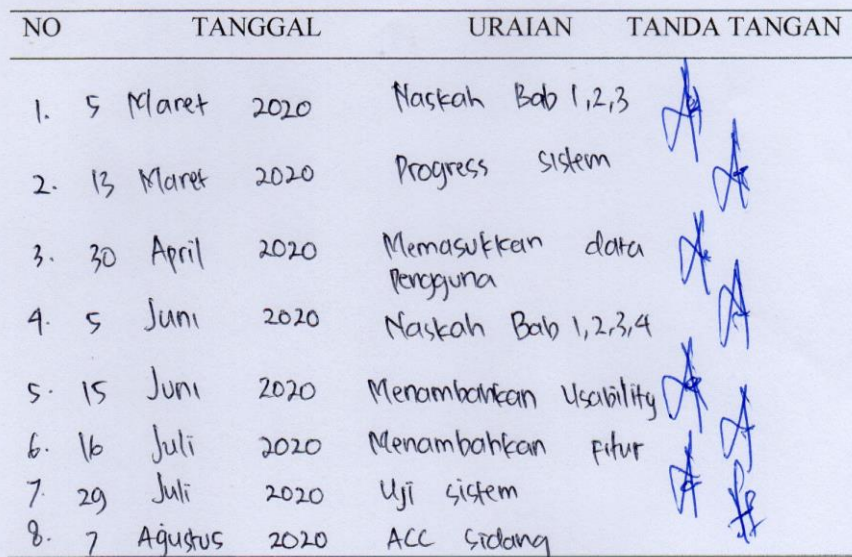 NO TANGGAL URAIAN TANDA TANGAN
1. 5 Maret 2020 Naskah Bab 1,2,3
2. 13 Maret 2020 Progress sistem
3. 30 April 2020 Memasukkan data
Pengguna
4. 5 Juni 2020 Naskah Bab 1,2,3,4
5. 15 Juni 2020 Menambahkan Usability
6. 16 Juli 2020 Menambahkan Fitur
7. 29 Juli 2020 Uji sistem
8. 7 Agustus 2020 ACC Sidang